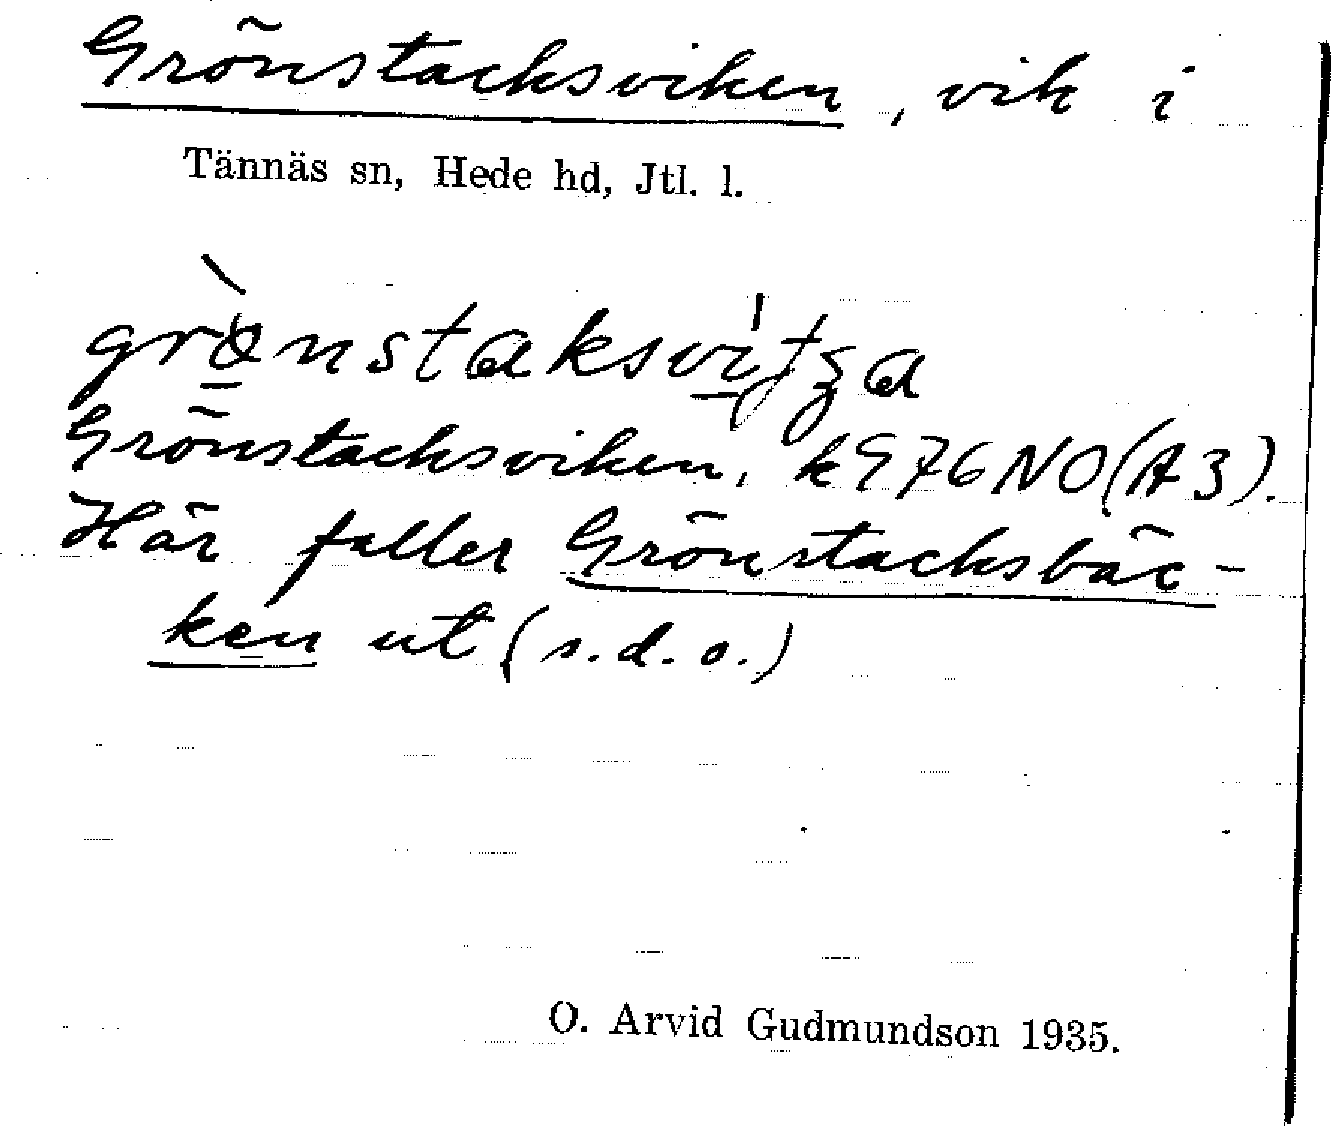 Grönstacksviken, vik i
Tännäs sn, Hede hd, Jtl. l.
Grönstacksviken, k976NO(A3).
Här faller Grönstacksbäc-
ken ut (s.d.o.)
O. Arvid Gudmundson 1935.